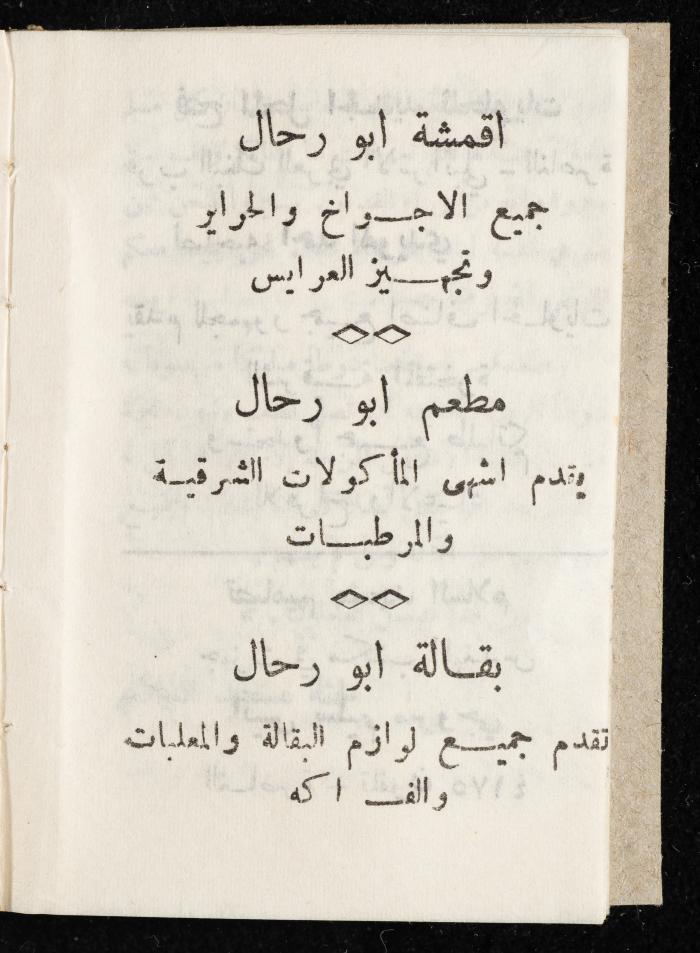 اقمشة ابو رحال
جميع الاجواخ والحراير
وتجهيز العرايس
مطعم ابو رحال
يقدم اشهى المأكولات الشرقية
والمرطبات
بقالة ابو رحال
تقدم جميع لوازم البقالة والمعلبات
والف اكه